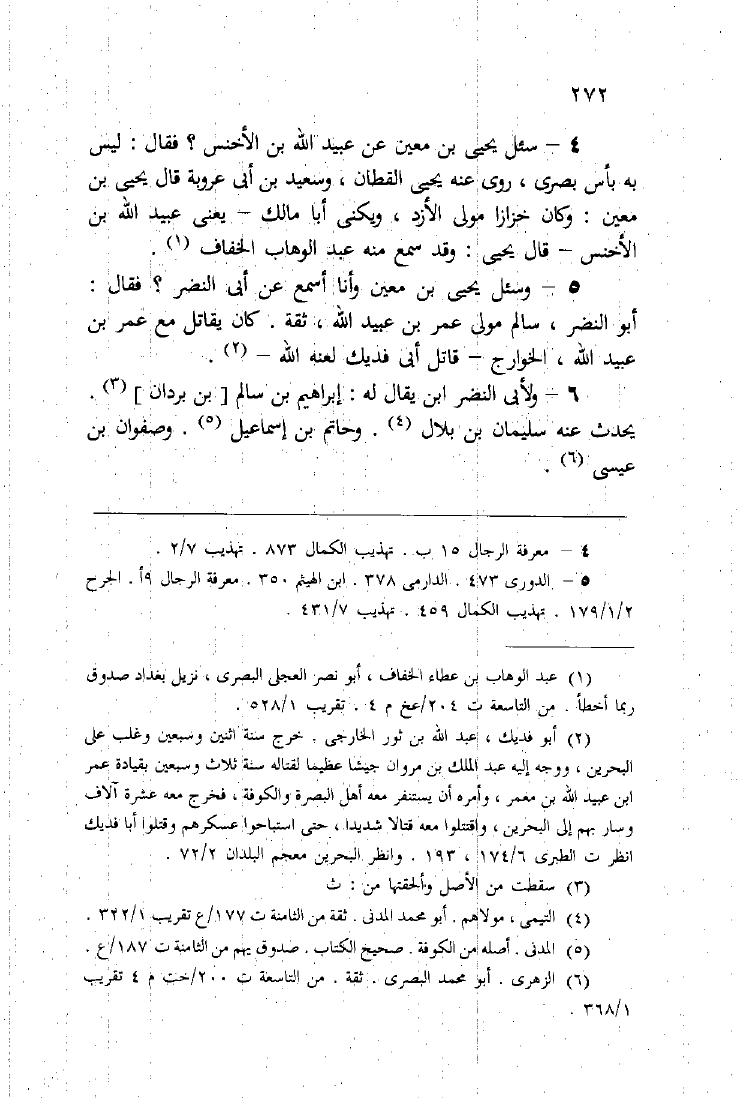 ٢٧٢
٤ – سئل يحيى بن معين عن عبيد الله بن الأخنس ؟ فقال : ليس
به بأس بصرى ، روى عنه يحيى القطان ، وسعيد بن أبى عروبة قال يحيى بن
معين : وكان خزازا مولى الأزد ، ويكنى أبا مالك – يعنى عبيد الله بن
الأخنس – قال يحيى : وقد سمع منه عبد الوهاب الخفاف (١) .
٥ – وسئل يحيى بن معين وأنا أسمع عن أبى النضر ؟ فقال :
أبو النضر ، سالم مولى عمر بن عبيد الله ، ثقة . كان يقاتل مع عمر بن
عبيد الله ، الخوارج – قاتل أبى فديك لعنه الله – (٢) .
٦ – ولأبى النضر ابن يقال له : إبراهيم بن سالم [ بن بردان ] (٣) .
يحدث عنه سليمان بن بلال (٤) . وحاتم بن إسماعيل (٥) . وصفوان بن
عيسى (٦) .
٤ – معرفة الرجال ١٥ ب . تهذيب الكمال ٨٧٣ . تهذيب ٢/٧ .
٥ – الدورى ٤٧٣ . الدارمى ٣٧٨ . ابن الهيثم ٣٥٠ . معرفة الرجال ٩أ . الجرح
١٧٩/١/٢ . تهذيب الكمال ٤٥٩ . تهذيب ٤٣١/٧ .
(١) عبد الوهاب بن عطاء الخفاف ، أبو نصر العجلى البصرى ، نزيل بغداد صدوق
ربما أخطأ . من التاسعة ت ٢٠٤/عخ م ٤ . تقريب ٥٢٨/١ .
(٢) أبو فديك ، عبد الله بن ثور الخارجى . خرج سنة اثنين وسبعين وغلب على
البحرين ، ووجه إليه عبد الملك بن مروان جيشا عظيما لقتاله سنة ثلاث وسبعين بقيادة عمر
ابن عبيد الله بن معمر ، وأمره أن يستنفر معه أهل البصرة والكوفة ، فخرج معه عشرة آلاف
وسار بهم إلى البحرين ، واقتتلوا معه قتالا شديدا ، حتى استباحوا عسكرهم وقتلوا أبا فديك
انظر ت الطبرى ١٧٤/٦ ، ١٩٣ . وانظر البحرين معجم البلدان ٧٢/٢ .
(٣) سقطت من الأصل وألحقتها من : ث
(٤) التيمى ، مولاهم . أبو محمد المدنى . ثقة من الثامنة ت ١٧٧/ع تقريب ٣٢٢/١ .
(٥) المدنى . أصله من الكوفة . صحيح الكتاب . صدوق يهم من الثامنة ت ١٨٧/ع .
(٦) الزهرى . أبو محمد البصرى . ثقة . من التاسعة ت ٢٠٠/خت م ٤ تقريب
٣٦٨/١ .